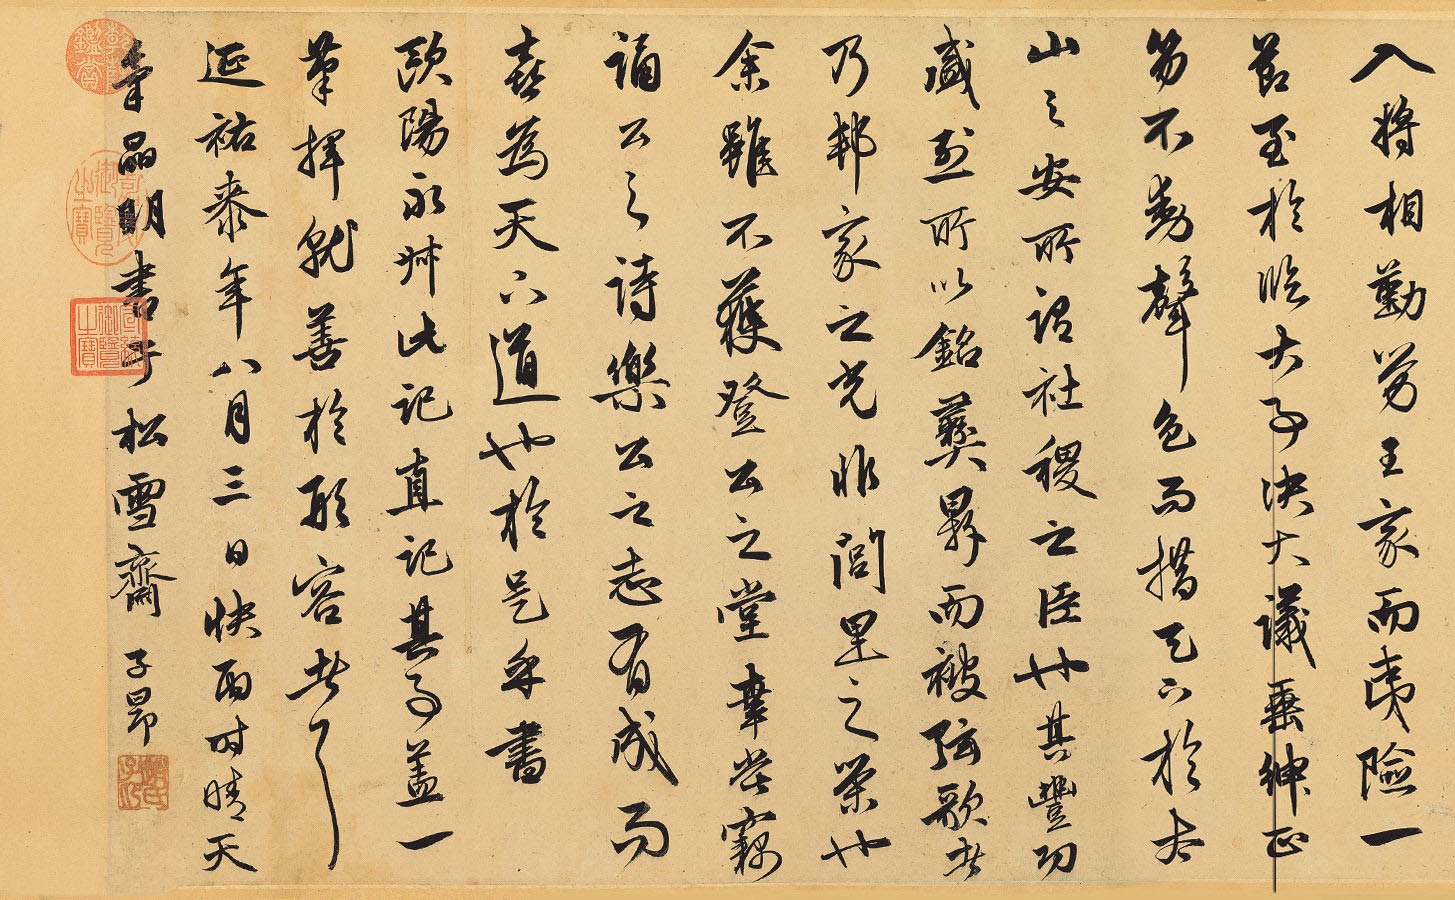 入將相勤勞王家而夷險一
節至於臨大事決大議垂紳正
笏不動聲色而措天下於太
山之安所謂社稷之臣也其豐功
盛烈所以銘彝鼎而被弦歌者
乃邦家之光非閭里之榮也
余雖不獲登公之堂幸嘗竊
誦公之詩樂公之志有成而
喜為天下道也於是乎書
歐陽永叔此記直記其事蓋一
筆揮就善於形容者耳
延祐泰年八月三日快雨時晴天
氣晶明書于松雪齋 子昂
趙氏子昂
乾隆鑑賞
嘉慶御覽之寶
宣統御覽之寶